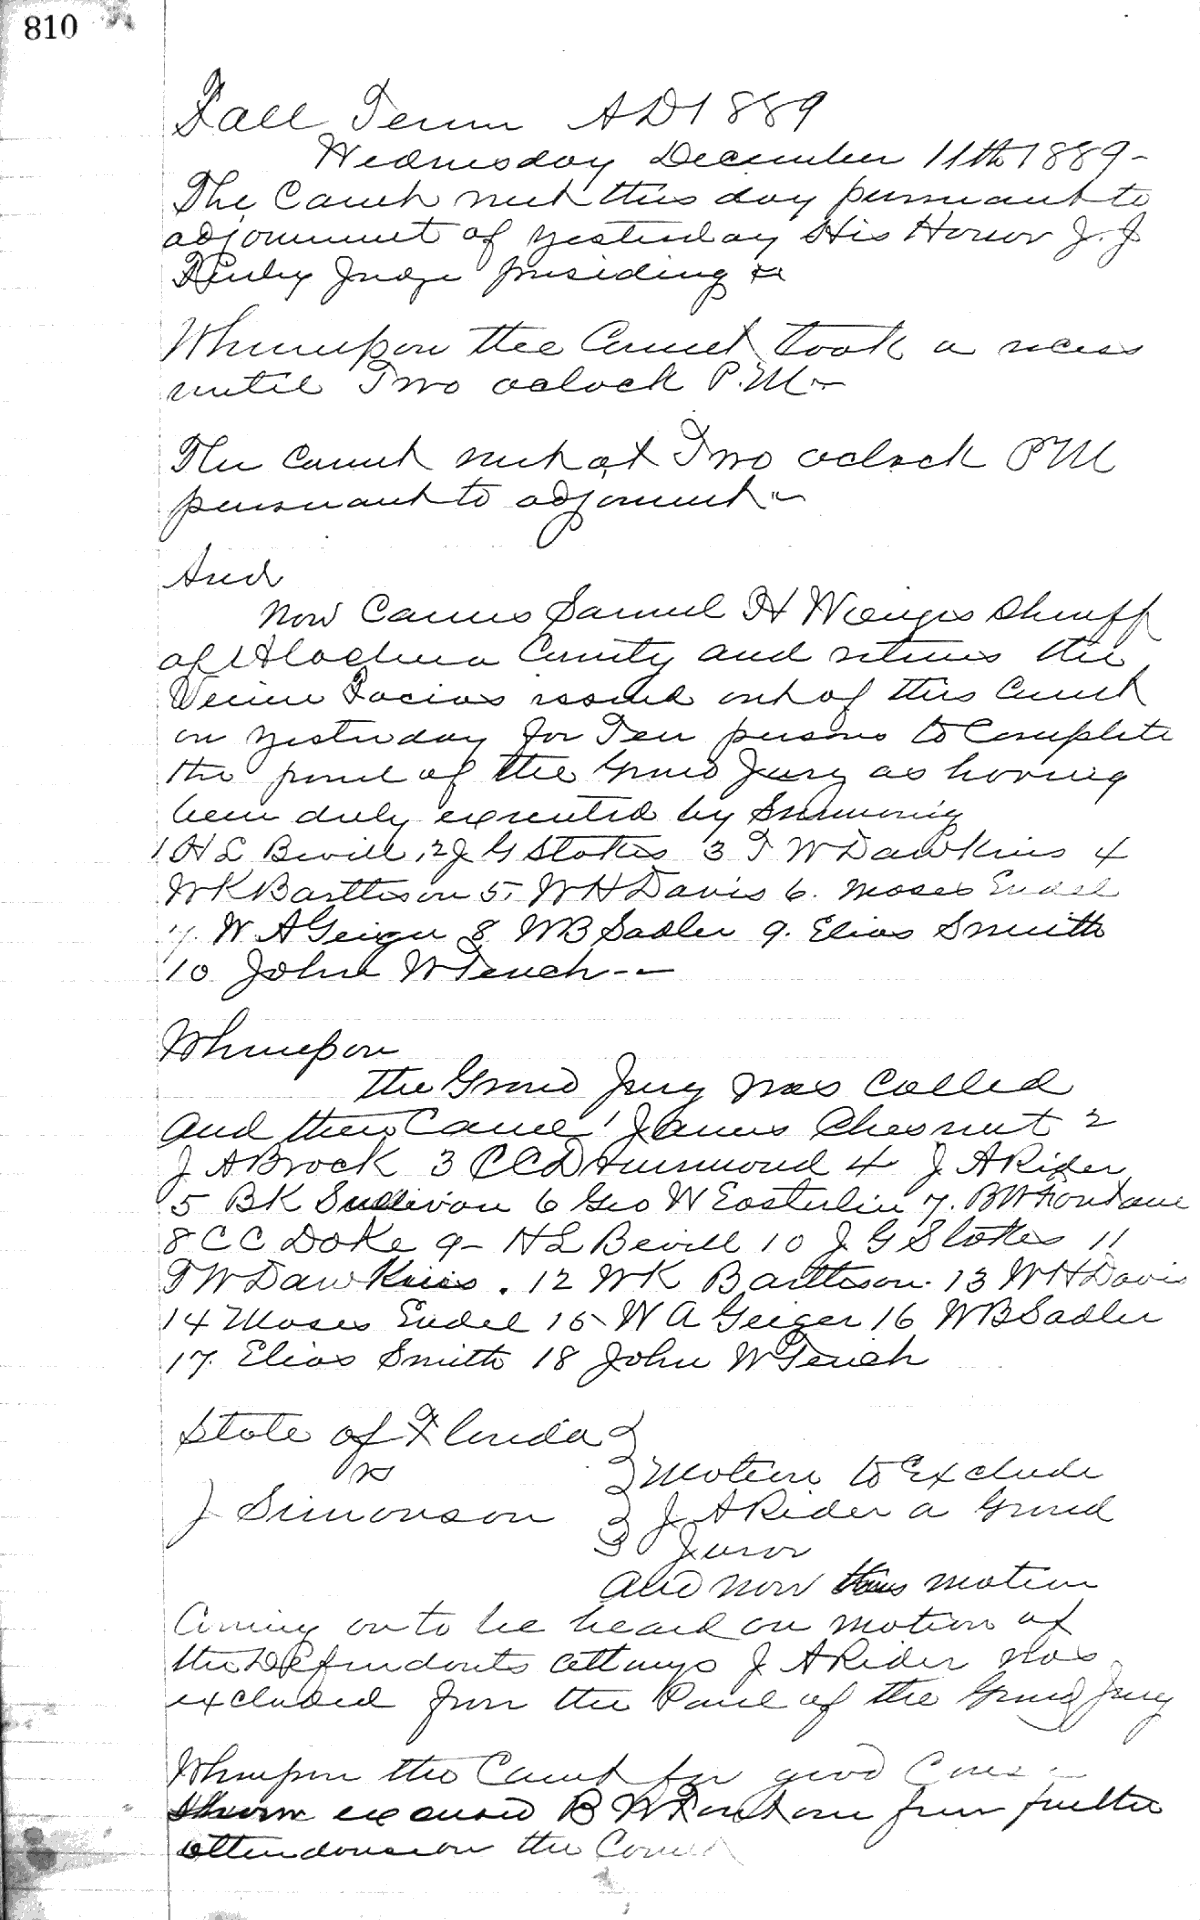 810
Fall Term AD 1889
Wednesday December 11th 1889-
The Court met this day pursuant to
adjournment of yesterday His Honor J. J.
Finley Judge presiding
Whereupon the Court took a recess
until Two oclock P.M-
The Court met at Two oclock PM
pursuant to adjornment
And
Now Comes Samuel H Wienges Sheriff
of Alachua County and returns the
Venire Facias issued out of this Court
on yesterday for Ten persons to Complete
the panel of the Grand Jury as having
been duly executed by Summonig
1 H L Bevill, 2 J G Stokes 3 T W Dawkins 4
W K Bartleson 5, W H Davis 6. Moses Endel
7. W A Geiger 8 W B Sadler 9. Elias Smith
10 John W Tench--
Whereupon
the Grand Jury was Called
and there Came 1 James Chesnut 2
J A Brock 3 C C Drummond 4 J A Rider
5 B K Sullivan 6 Geo W Easterlin 7. B W Fontane
8 C C Doke 9- H L Bevill 10 J G Stokes 11
T W Dawkins. 12 W K Bartleson. 13 W H Davis
14 Moses Endel 15 W A Geiger 16 W B Sadler
17. Elias Smith 18 John W Tench
State of Florida
vs
Motion to Exclude
J Simonson
J A Rider a Grand
Juror
And now this motion
Coming on to be heard on motion of
the Defendants attnys J A Rider was
excluded from the Panel of the Grand Jury
Whereupon the Court for good Caus
shown excused B W Fontane from further
attendance on the Court